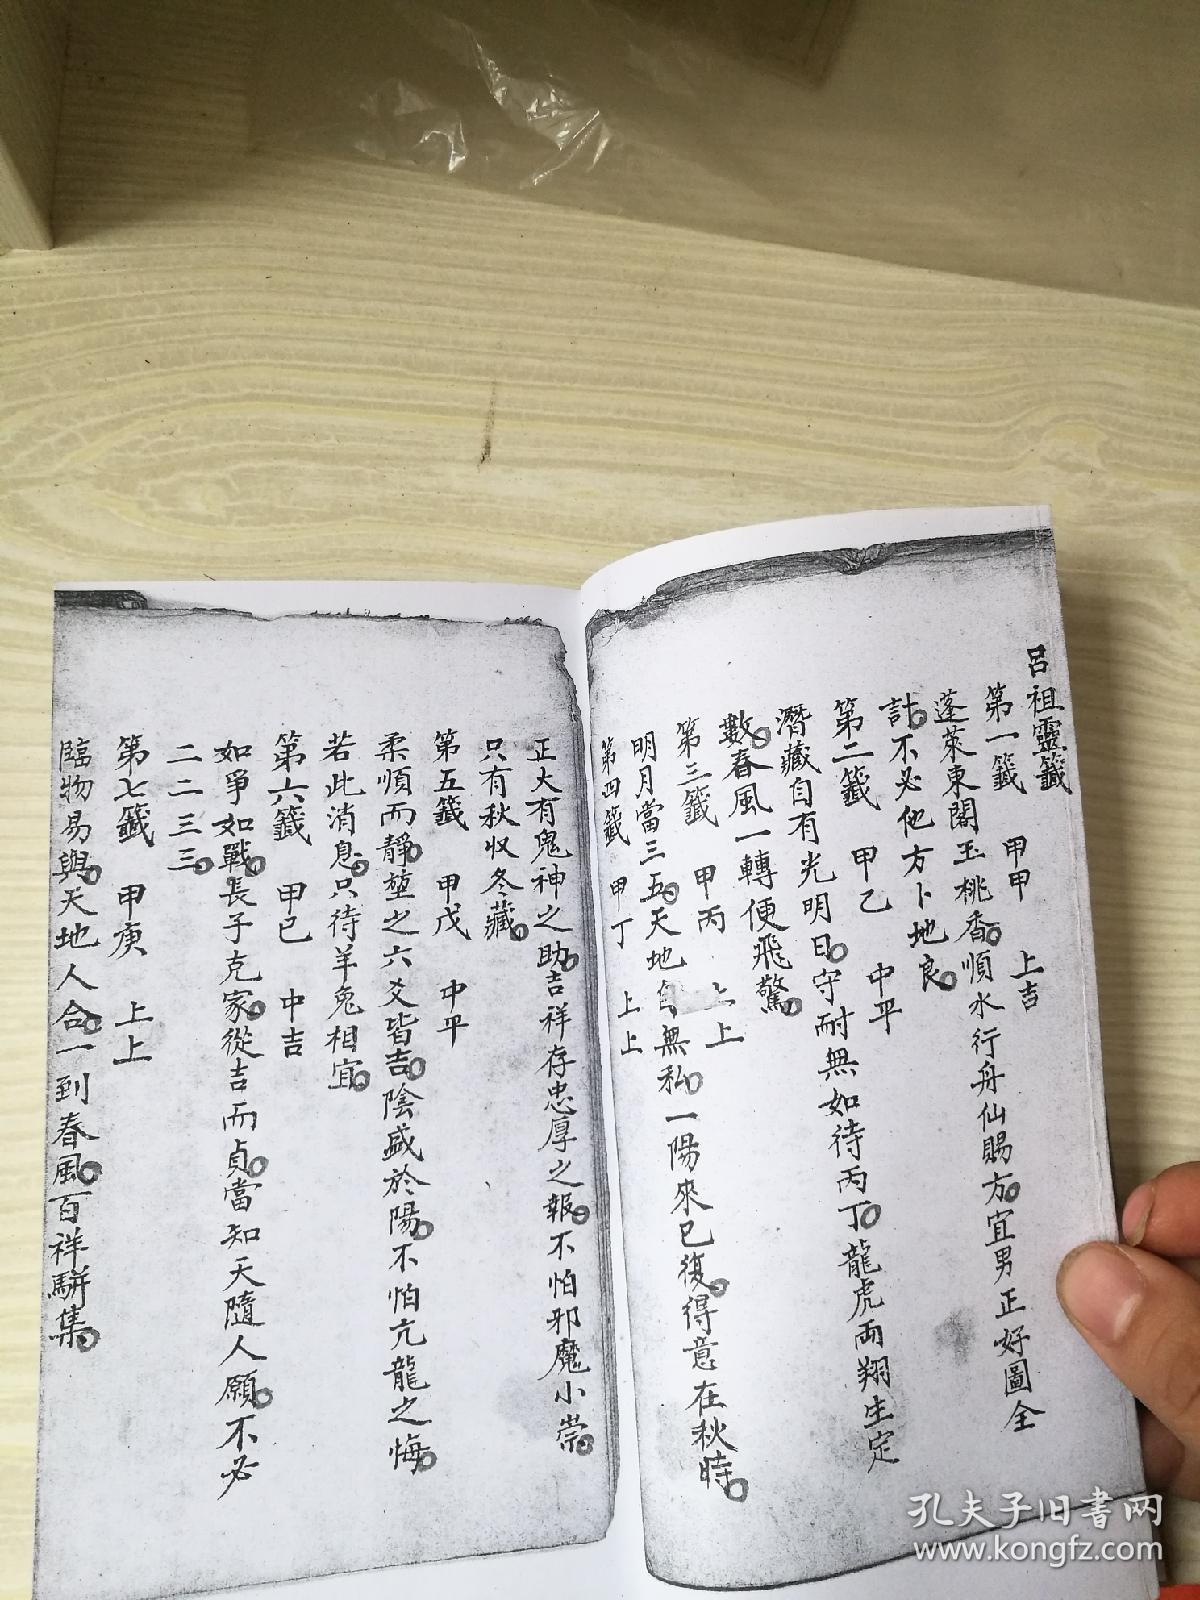 呂祖靈籤
第一籤 甲甲 上吉
蓬萊東閣玉桃香順水行舟仙賜方宜男正好圖全
計不必他方卜地良
第二籤 甲乙 中平
潛藏自有光明日守耐無如待丙丁龍虎兩翔生定
數春風一轉便飛驚
第三籤 甲丙 上上
明月當三五天地自無私一陽來已復得意在秋時
第四籤 甲丁 上上
正大有鬼神之助吉祥存忠厚之報不怕邪魔小祟
只有秋收冬藏
第五籤 甲戊 中平
柔順而靜堃之六爻皆吉陰盛於陽不怕亢龍之悔
若此消息只待羊兔相宜
第六籤 甲已 中吉
如爭如戰長子克家從吉而貞當知天隨人願不必
二二三三
第七籤 甲庚 上上
臨物易與天地人合一到春風百祥駢集
孔夫子旧书网
www.kongfz.com